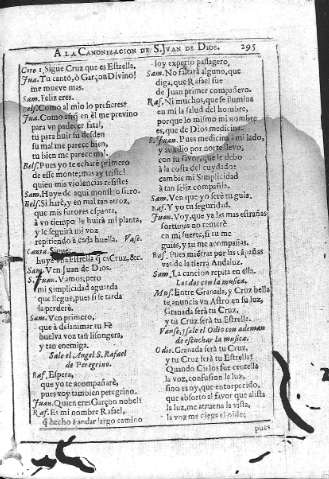 A LA CANONIZACION DE S. JUAN DE DIOS. 295
Coro 1. Sigue Cruz que es Estrella.
Jua. Tu canto, ò Garçon Divino!
me mueve mas.
Sam. Feliz eres.
Bels. Como al mio lo prefieres?
Jua. Como este en èl me previno
para un padecer fatal,
tu para huir tu desden
su mal me parece bien,
tu bien me parece mal.
Bels. Pues yo te echarè primero
de esse monte; mas ay triste!
quien mis violencias resiste?
Sam. Huye de aqui monstruo fiero.
Bels. Si harè, y en mal tan atroz,
que mis furores espanta,
à un tiempo le huirà mi planta,
y le seguirà mi voz
repitiendo à cada huella. Vase.
Canta
huye esta Estrella q̃ es Cruz, &c.
Sam. Ven Juan de Dios.
S. Juan. Vamos, pero
mi simplicidad aguarda
que llegue, pues si se tarda
se perderà.
Sam. Ven primero,
que à dessanimar tu Fè
buelva voz tan lisongera,
y tan enemiga.
Sale el Angel S. Rafael
de Peregrino.
Raf. Espera,
que yo te acompañarè,
pues voy tambien peregrino.
Juan. Quien eres Garçon noble?
Raf. Es mi nombre Rafael,
q̃ hecho à andar largo camino
soy experto passagero.
Sam. No faltarà alguno, que
diga, que Rafael fue
de Juan primer compañero.
Raf. Ni muchos, que se ilumina
en mi la salud del hombre,
porque lo mismo mi nombre
es, que de Dios medicina.
S. Juan. Pues medicina à mi lado,
y auxilio por norte llevo,
con su favor, que le debo
à la costa del cuydado
cambie mi simplicidad
à tan feliz compañia.
Sam. Ven que yo serè tu guia.
Raf. Y yo tu seguridad.
Juan. Voy, que ya las mas estrañas
fortunas no temerè
en mi suerte, si tu me
guias, y tu me acompañas.
Raf. Pues mientras por las campañas
vas de la tierra Andaluz.
Sam. La cancion repita en ella.
Los dos con la musica.
Mus. Entre Granada, y Cruz bella
te anuncia un Astro en su luz,
Granada serà tu Cruz,
y tu Cruz serà tu Estrella.
Vanse, y sale el Odio con ademan
de escuchar la musica.
Odio. Granada serà tu Cruz,
y tu Cruz serà tu Estrella?
Quando Cielos fue centella
la voz, confusion la luz,
sino es oy, que entorpecido,
que absorto el favor que alista
la luz, me atruena la vista,
la voz me ciega el oido;
pues